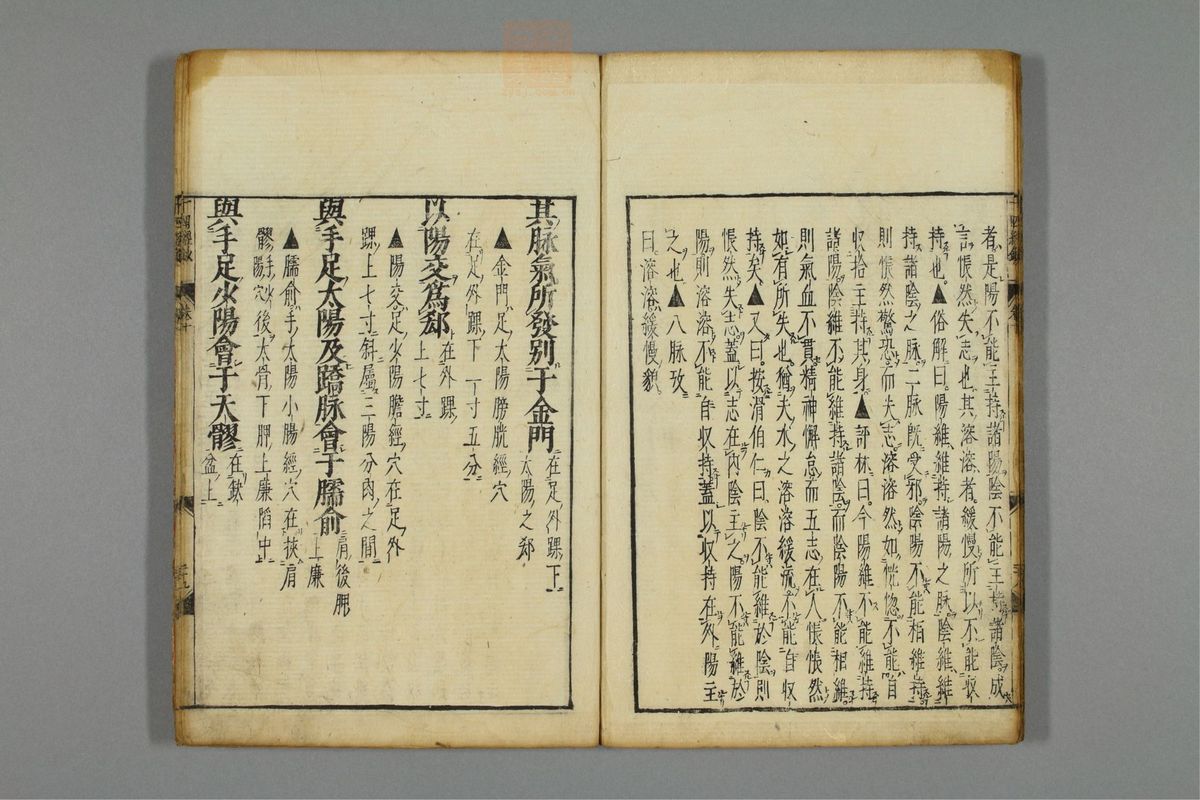 者是陽不能主持諸陽陰不能主持諸陰成
言悵然失志也其溶溶者緩慢所以不能収
持也▲俗解曰陽維維持諸陽之脉陰維維
持諸陰之脉二脉既受邪陰陽不能相維持
則悵然驚恐而失志溶溶然如恍惚不能自
収拾主持其身▲評林曰今陽維不能維持
諸陽陰維不能維持諸陰而陰陽不能相維
則氣血不貫精神懈怠而五志在人悵悵然
如有所失也猶夫水之溶溶緩流不能自収
持矣▲又曰按滑伯仁曰陰不能維於陰則
悵然失志蓋以志在内陰主之陽不能維於
陽則溶溶不能自収持蓋以収持在外陽主
之也▲八脉攷
曰溶溶緩慢貌
其脉氣所發别于金門在足外踝下太陽之郄
▲金門足太陽膀胱經穴
在足外踝下一寸五分
以陽交爲郄在外踝上七寸
▲陽交足少陽膽經穴在足外
踝上七寸斜屬三陽分肉之間
與手足太陽及蹻脉會于臑俞肩後胛上廉
▲臑俞手太陽小腸經穴在挾肩
髎手少陽穴後大骨下胛上廉䧟中
與手足少陽會于天髎在缺盆上